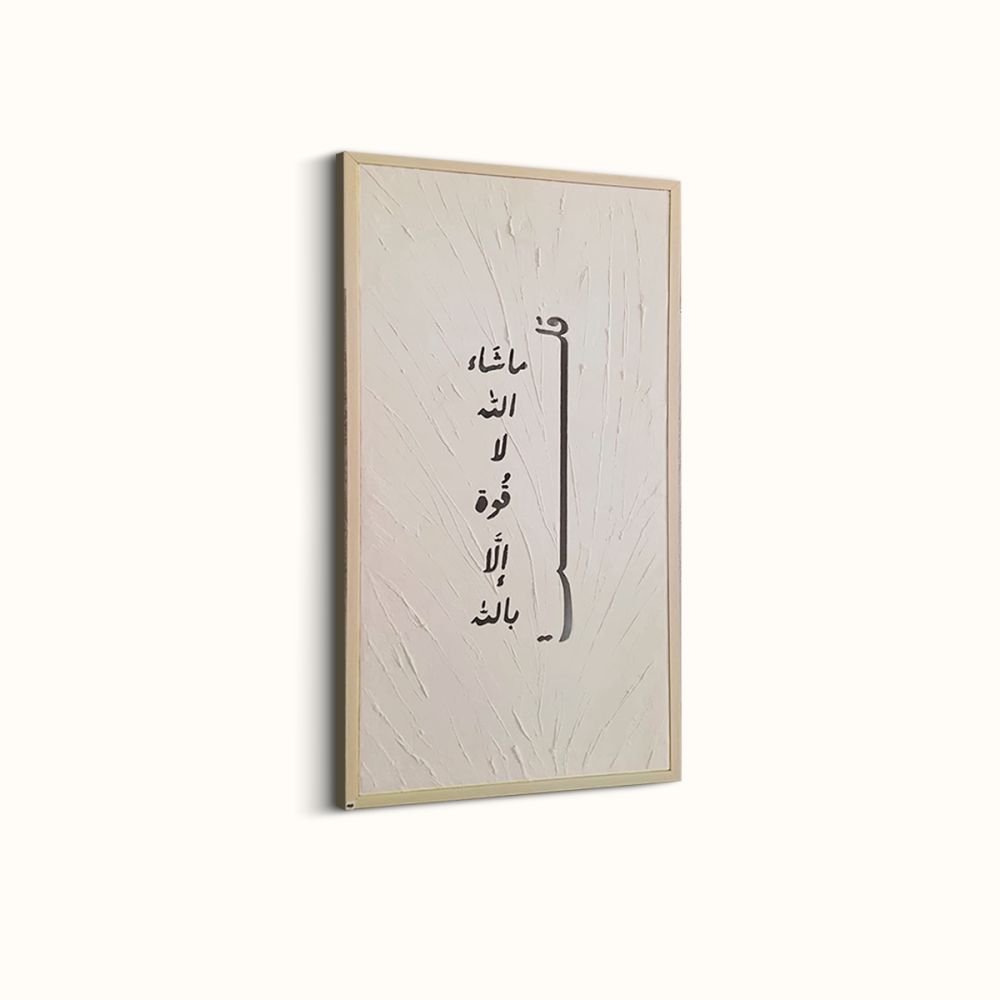 قلت
ماشَاء
الله
لا
قُوة
إلَّا
بالله